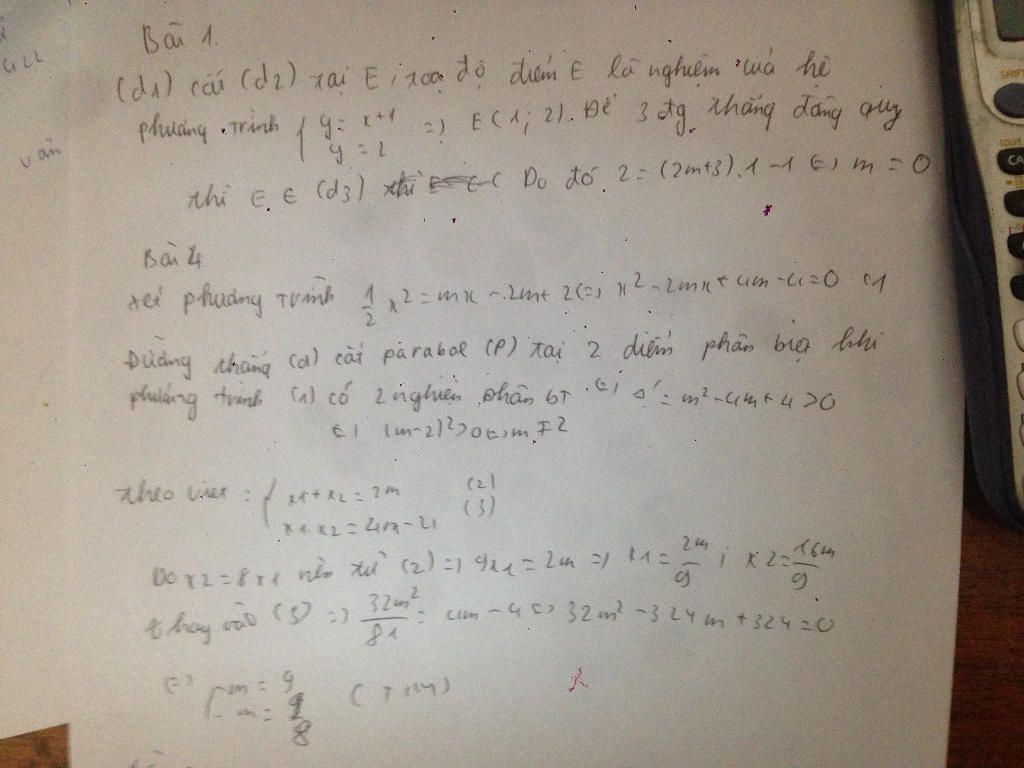 Bài 1.
(d1) cắt (d2) tại E, toạ độ điểm E là nghiệm của hệ
phương trình { y = x+1
y = 2 => E(1; 2). Để 3 đg thẳng đồng quy
thì E ∈ (d3) thì Do đó 2 = (2m+3).1 -1 <=> m = 0
Bài 4
xét phương trình 1/2 x² = mx - 2m + 2 <=> x² - 2mx + 4m - 4 = 0 (1
Đường thẳng (d) cắt parabol (P) tại 2 điểm phân biệt khi
phương trình (1) có 2 nghiện phân bt <=> Δ' = m² - 4m + 4 > 0
<=> (m-2)² > 0 <=> m ≠ 2
theo viet : { x1 + x2 = 2m (2)
x1.x2 = 4m - 4 (3)
Do x2 = 8x1 nên từ (2) => 9x1 = 2m => x1 = 2m/9 ; x2 = 16m/9
thay vào (3) => 32m²/81 = 4m - 4 <=> 32m² - 324m + 324 = 0
<=> [ m = 9
m = 9/8 (T/m)
văn
SHIFT